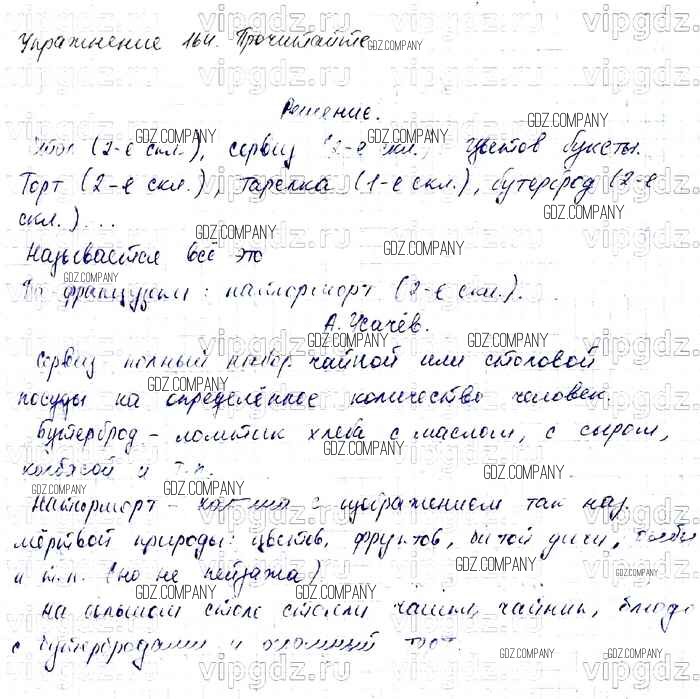 Упражнение 164. Прочитайте
Решение.
Стол (2-е скл.), сервиз (2-е скл., цветов букеты.
Торт (2-е скл.), тарелка (1-е скл.), бутерброд (2-е
скл.)...
Называется всё это
По-французски: натюрморт (2-е скл.).
А. Усачёв.
Сервиз полный набор чайной или столовой
посуды на определённое количество человек.
Бутерброд - ломтик хлеба с маслом, с сыром,
колбасой и т.п.
Натюрморт - картина с изображением так наз.
мёртвой природы: цветов, фруктов, битой дичи, рыбы
и т.п. (но не пейзажа)
на столе стояли чашки, чайник, блюдо
с бутербродами и торт.
GDZ.COMPANY
vipgdz.ru